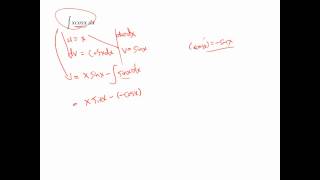 ∫ x cosx dx
u = x du = dx
dv = cosx dx v = sinx
= x sinx - ∫ sinx dx
= x sinx - (-cosx)
(cosx)' = -sinx